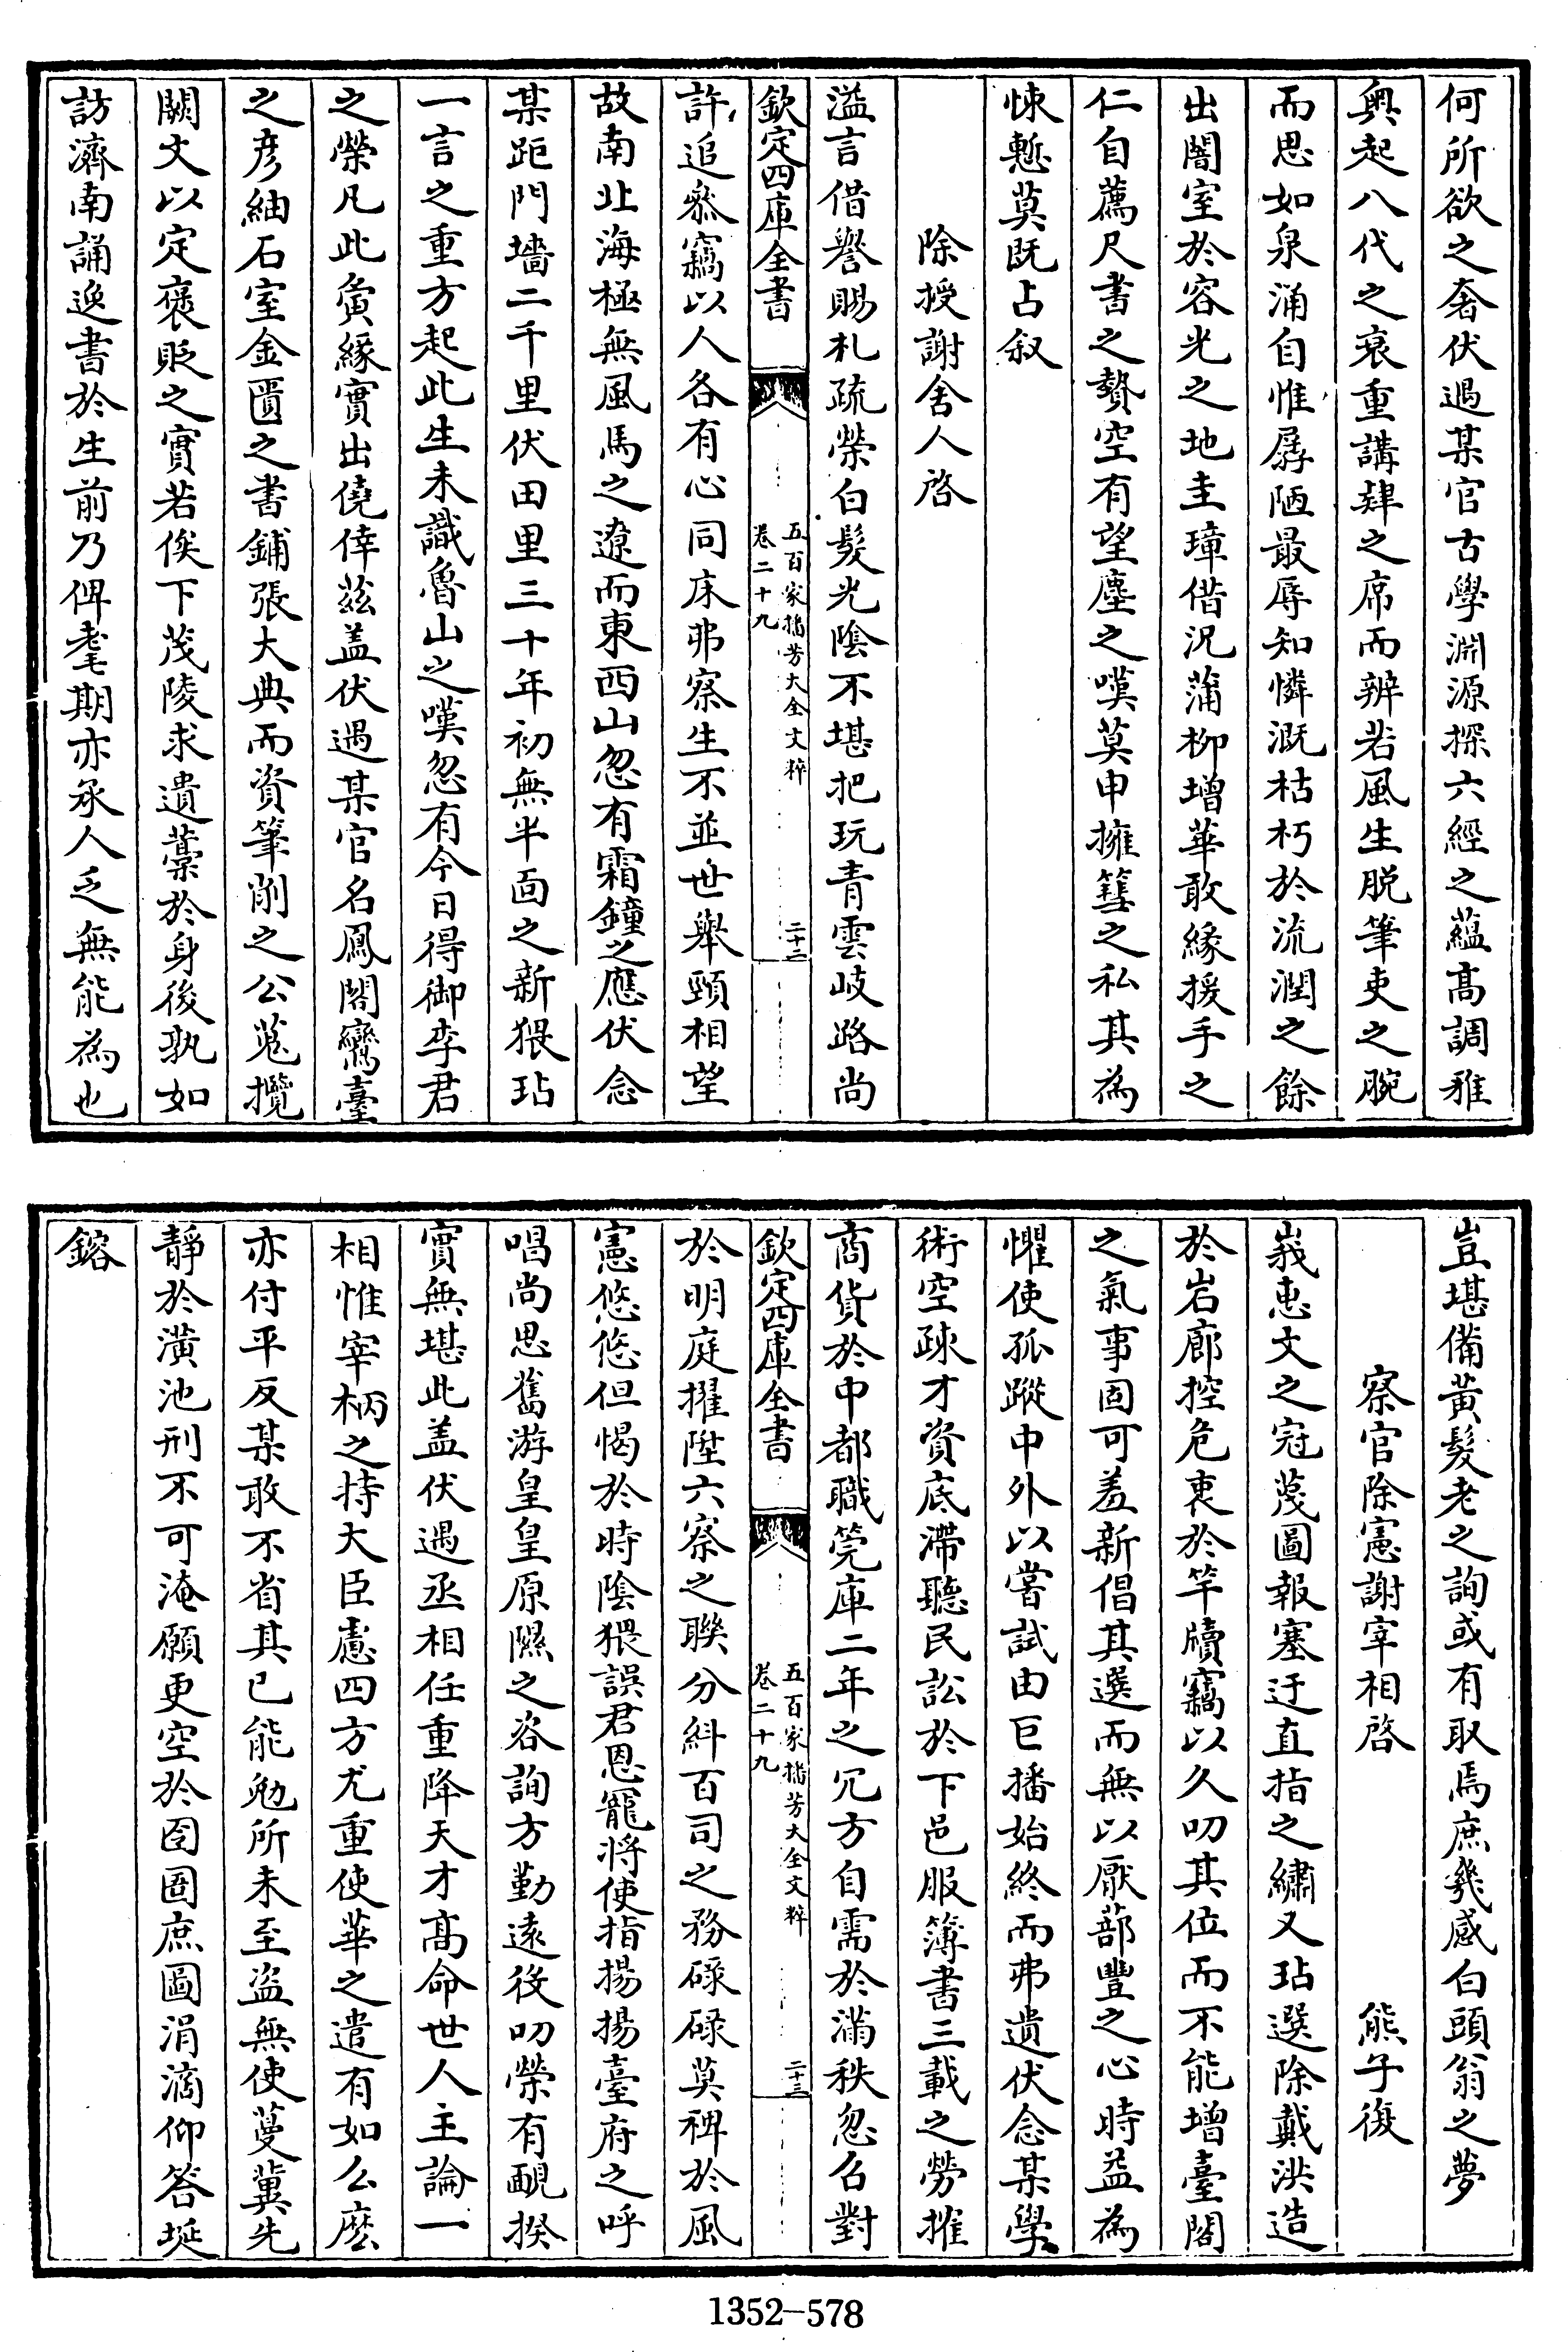 何所欲之奢伏遇某官古學淵源探六經之蘊高調雅
奥起八代之衰重講肄之席而辨若風生脱筆吏之腕
而思如泉涌自惟孱陋最辱知憐溉枯朽於流潤之餘
出闇室於容光之地圭璋借況蒲柳增華敢緣援手之
仁自薦尺書之贄空有望塵之嘆莫申擁篲之私其為
悚慙莫既占叙
除授謝舍人啓
溢言借譽賜札疏榮白髮光陰不堪把玩青雲岐路尚
欽定四庫全書
五百家播芳大全文粹
卷二十九
二十二
許追叅竊以人各有心同床弗察生不並世舉頸相望
故南北海極無風馬之遼而東西山忽有霜鐘之應伏念
某距門墻二千里伏田里三十年初無半面之新猥玷
一言之重方起此生未識魯山之嘆忽有今日得御李君
之榮凡此夤緣實出僥倖兹盖伏遇某官名鳳閣鸞臺
之彦紬石室金匱之書鋪張大典而資筆削之公蒐攬
闕文以定褒貶之實若俟下茂陵求遺藁於身後孰如
訪濟南誦逸書於生前乃俾耄期亦承人乏無能為也
豈堪備黄髮老之詢或有取焉庶幾感白頭翁之夢
察官除憲謝宰相啓
熊子復
峩恵文之冠蔑圖報塞迂直指之繡又玷選除戴洪造
於岩廊控危衷於竿牘竊以久叨其位而不能增臺閣
之氣事固可羞新倡其選而無以厭蔀豐之心時益為
懼使孤蹤中外以嘗試由巨播始終而弗遺伏念某學
術空疎才資底滯聽民訟於下邑服簿書三載之勞摧
商貨於中都職筦庫二年之冗方自需於滿秩忽召對
欽定四庫全書
五百家播芳大全文粹
卷二十九
二十三
於明庭擢陞六察之聨分糾百司之務碌碌莫禆於風
憲悠悠但愒於時隂猥誤君恩寵將使指揚揚臺府之呼
唱尚思舊游皇皇原隰之咨詢方勤逺役叨榮有靦揆
實無堪此盖伏遇丞相任重降天才髙命世人主論一
相惟宰柄之持大臣慮四方尤重使華之遣有如么麽
亦付平反某敢不省其已能勉所未至盗無使蔓冀先
静於潢池刑不可淹願更空於囹圄庶圖涓滴仰答埏
鎔
1352-578